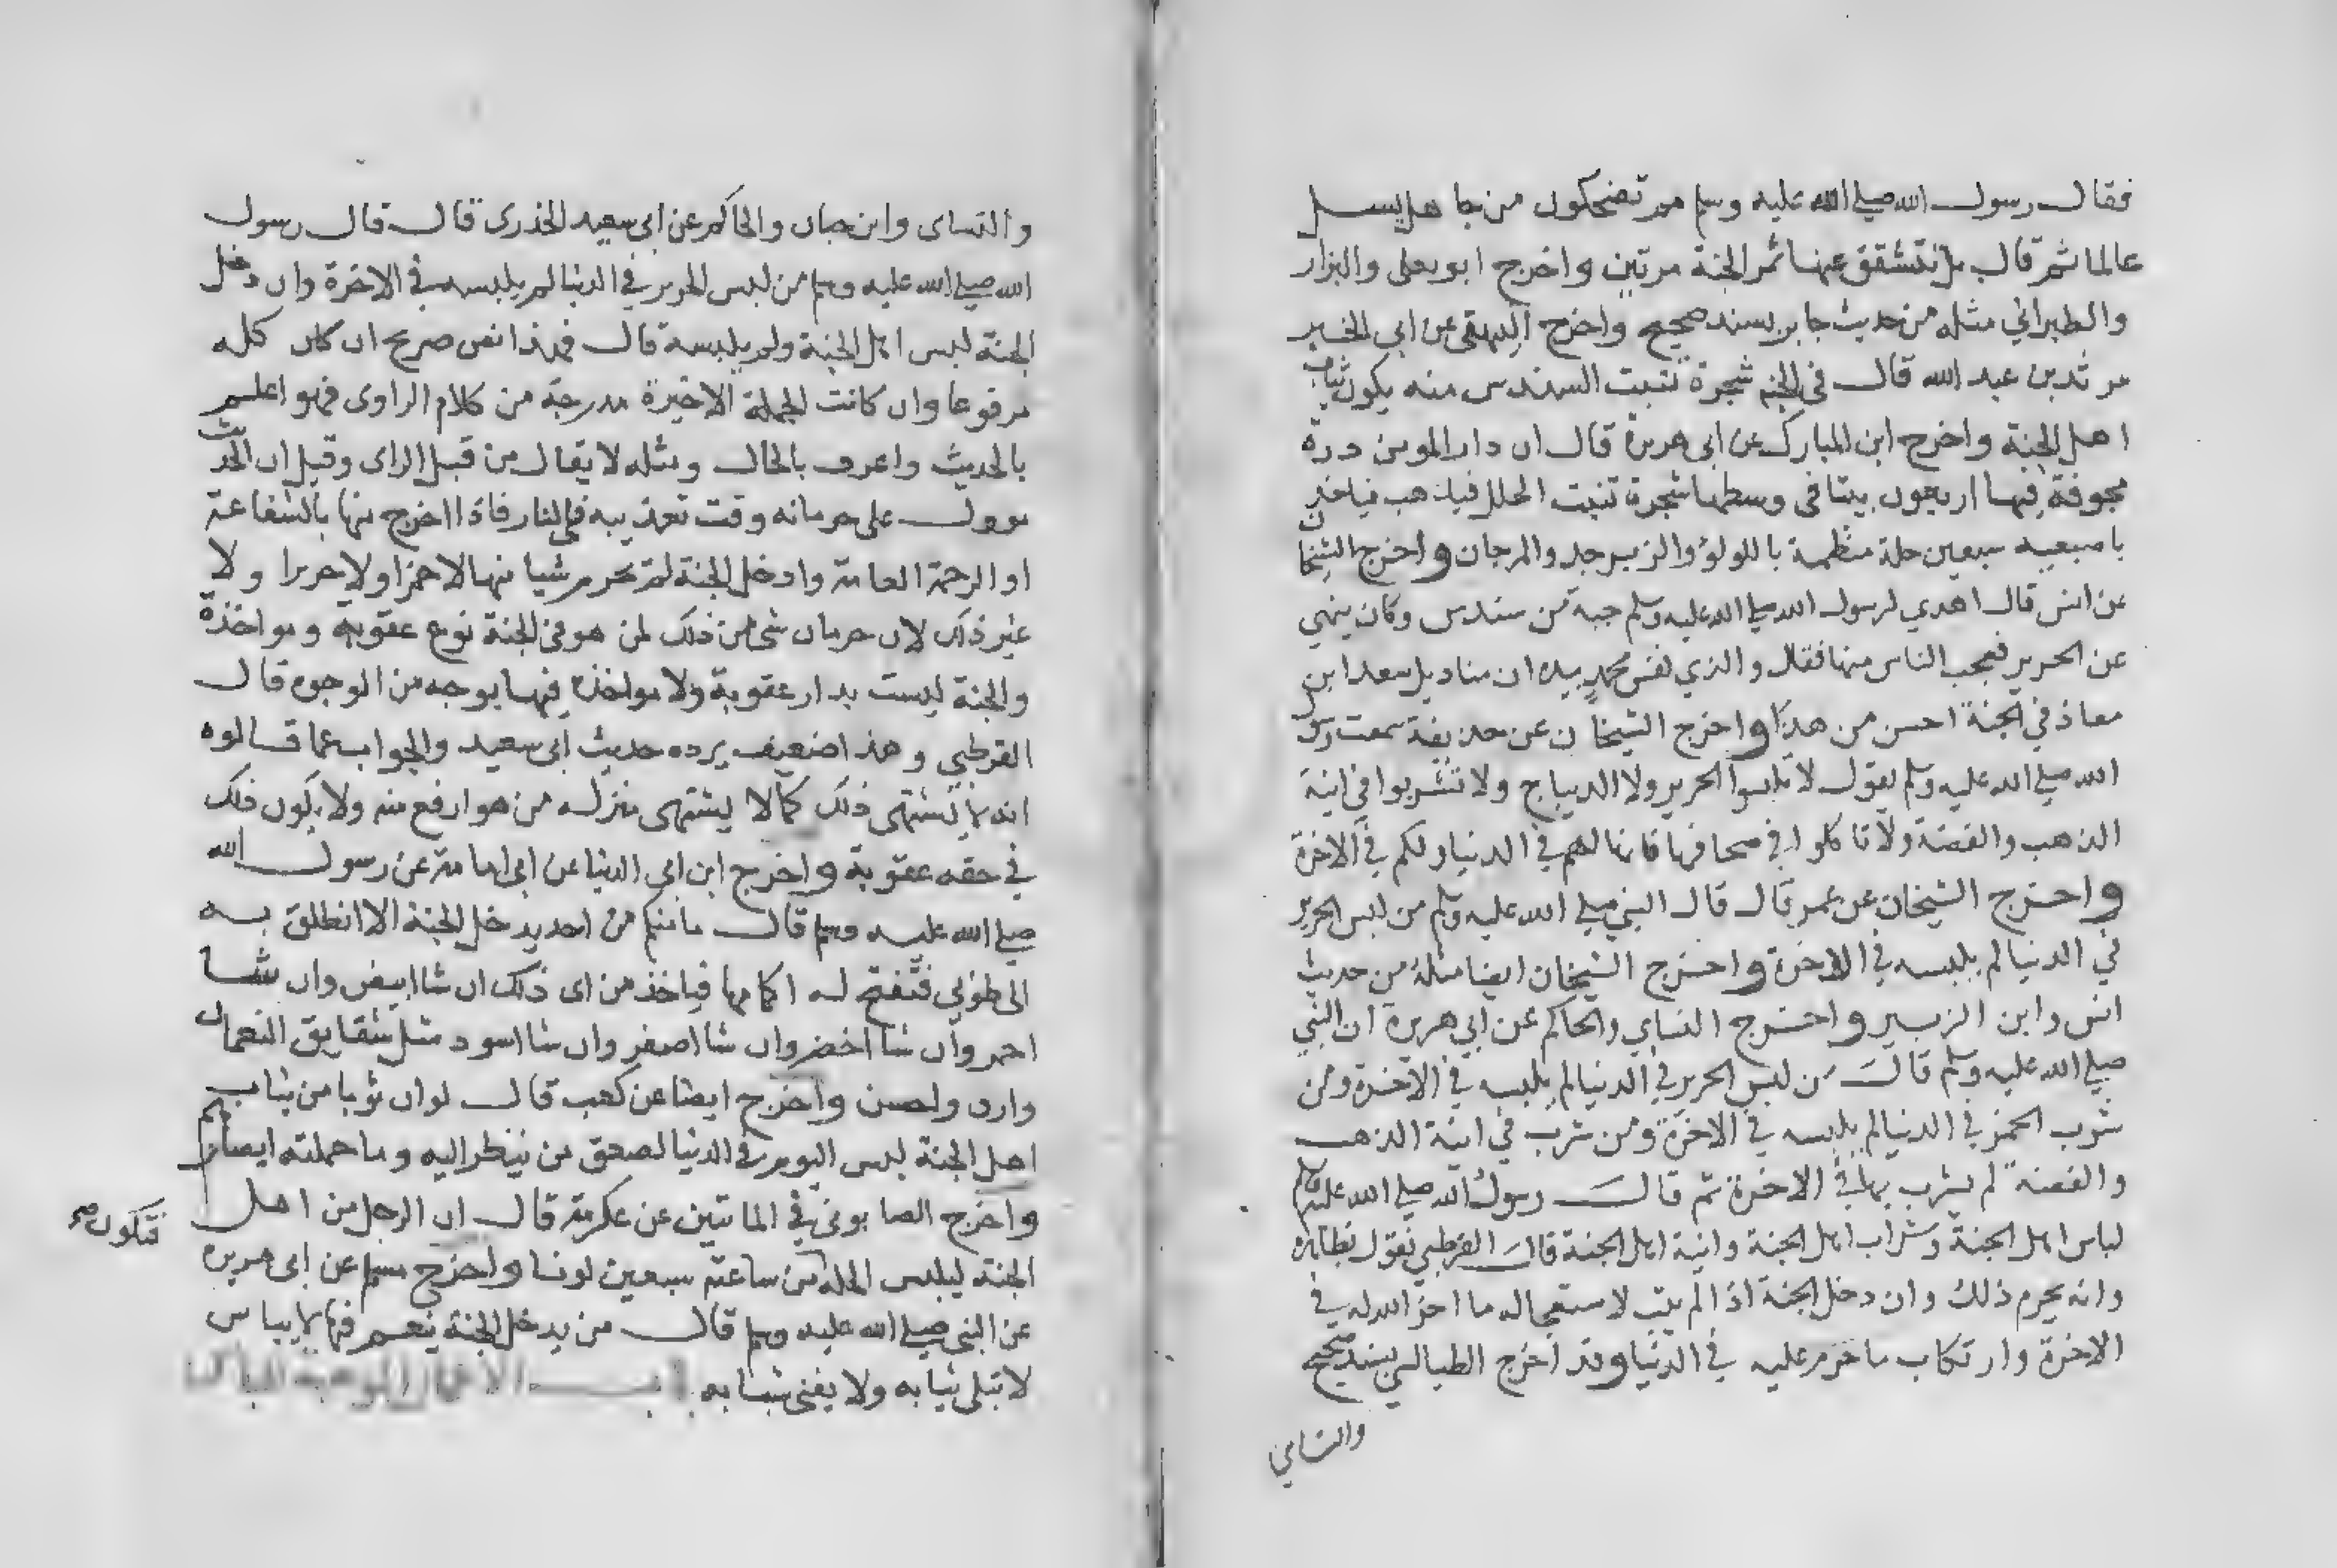 فقال رسول الله صلي الله عليه وسلم مم تضحكون من جاهل يسل
عالما ثم قال بل تتشقق عنها ثمر الجنة مرتين واخرج ابو يعلى والبزار
والطبراني مثله من حديث جابر بسند صحيح واخرج البيهقى عن ابى الخير
مرثد بن عبد الله قال فى الجنة شجرة تنبت السندس منه يكون ثياب
اهل الجنة واخرج ابن المبارك عن ابى هريرة قال ان دار المومن درة
مجوفة فيها اربعون بيتا فى وسطها شجرة تنبت الحلل فيذهب فياخذ
باصبعيه سبعين حلة منظمة باللولؤ والزبرجد والمرجان واخرج الشيخان
عن انس قال اهدي لرسول الله صلي الله عليه وسلم جبة من سندس وكان ينهي
عن الحرير فعجب الناس منها فقال والذي نفس محمد بيده ان مناديل سعد ابن
معاذ في الجنة احسن من هذا واخرج الشيخان عن حذيفة سمعت رسول
الله صلي الله عليه وسلم يقول لا تلبسوا الحرير ولا الديباج ولا تشربوا في انية
الذهب والفضة ولا تاكلوا في صحافها فانها لهم في الدنيا ولكم في الاخرة
واخرج الشيخان عن عمر قال قال النبي صلي الله عليه وسلم من لبس الحرير
في الدنيا لم يلبسه في الاخرة واخرج الشيخان ايضا مثله من حديث
انس وابن الزبير واخرج النساي والحاكم عن ابي هريرة ان النبي
صلي الله عليه وسلم قال من لبس الحرير في الدنيا لم يلبسه في الاخرة ومن
شرب الخمر في الدنيا لم يلبسه في الاخرة ومن شرب في انية الذهب
والفضة لم يشرب بها في الاخرة ثم قال رسول الله صلي الله عليه وسلم
لباس اهل الجنة وشراب اهل الجنة وانية اهل الجنة قال القرطبي نقول بظاهره
وانه يحرم ذلك وان دخل الجنة اذا لم يتب لاستعجاله ما اخر الله له في
الاخرة وارتكاب ما حرم عليه في الدنيا وقد اخرج الطيالسي بسند صحيح
والنساي
والنساى وابن حبان والحاكم عن ابى سعيد الخدرى قال قال رسول
الله صلي الله عليه وسلم من لبس الحرير في الدنيا لم يلبسه في الاخرة وان دخل
الجنة لبس اهل الجنة ولم يلبسه قال فهذا نص صريح ان كان كله
مرفوعا وان كانت الجملة الاخيرة مدرجة من كلام الراوى فهو اعلم
بالحديث واعرف بالحال ومثله لا يقال من قبل الراى وقيل ان الحديث
موول على حرمانه وقت تعذيبه في النار فاذا اخرج منها بالشفاعة
او الرحمة العامة وادخل الجنة لم يحرم شيا منها لا خمرا ولا حريرا ولا
غير ذلك لان حرمان شى من ذلك لمن هو في الجنة نوع عقوبة ومواخذة
والجنة ليست بدار عقوبة ولا مواخذة فيها بوجه من الوجوه قال
القرطبي وهذا ضعيف يرده حديث ابى سعيد والجواب عما قالوه
انه لا يشتهى ذلك كما لا يشتهى منزلة من هو ارفع منه ولا يكون ذلك
في حقه عقوبة واخرج ابن ابى الدنيا عن ابى امامة عن رسول الله
صلي الله عليه وسلم قال ما منكم من احد يدخل الجنة الا انطلق به
الى طوبي فتفتح له اكمامها فياخذ من اى ذلك ان شا ابيض وان شا
احمر وان شا اخضر وان شا اصفر وان شا اسود مثل شقايق النعمان
وارق واحسن واخرج ايضا عن كعب قال لو ان ثوبا من ثياب
اهل الجنة لبس اليوم في الدنيا لصعق من ينظر اليه وما حملته ابصارهم
واخرج الصابونى في الماتين عن عكرمة قال ان الرجل من اهل
فتكون صح
الجنة ليلبس الحلة من ساعته سبعين لونا واخرج مسلم عن ابى هريرة
عن النبى صلي الله عليه وسلم قال من يدخل الجنة ينعم فيها لا يباس
لا تبلى ثيابه ولا يفنى شبابه باب